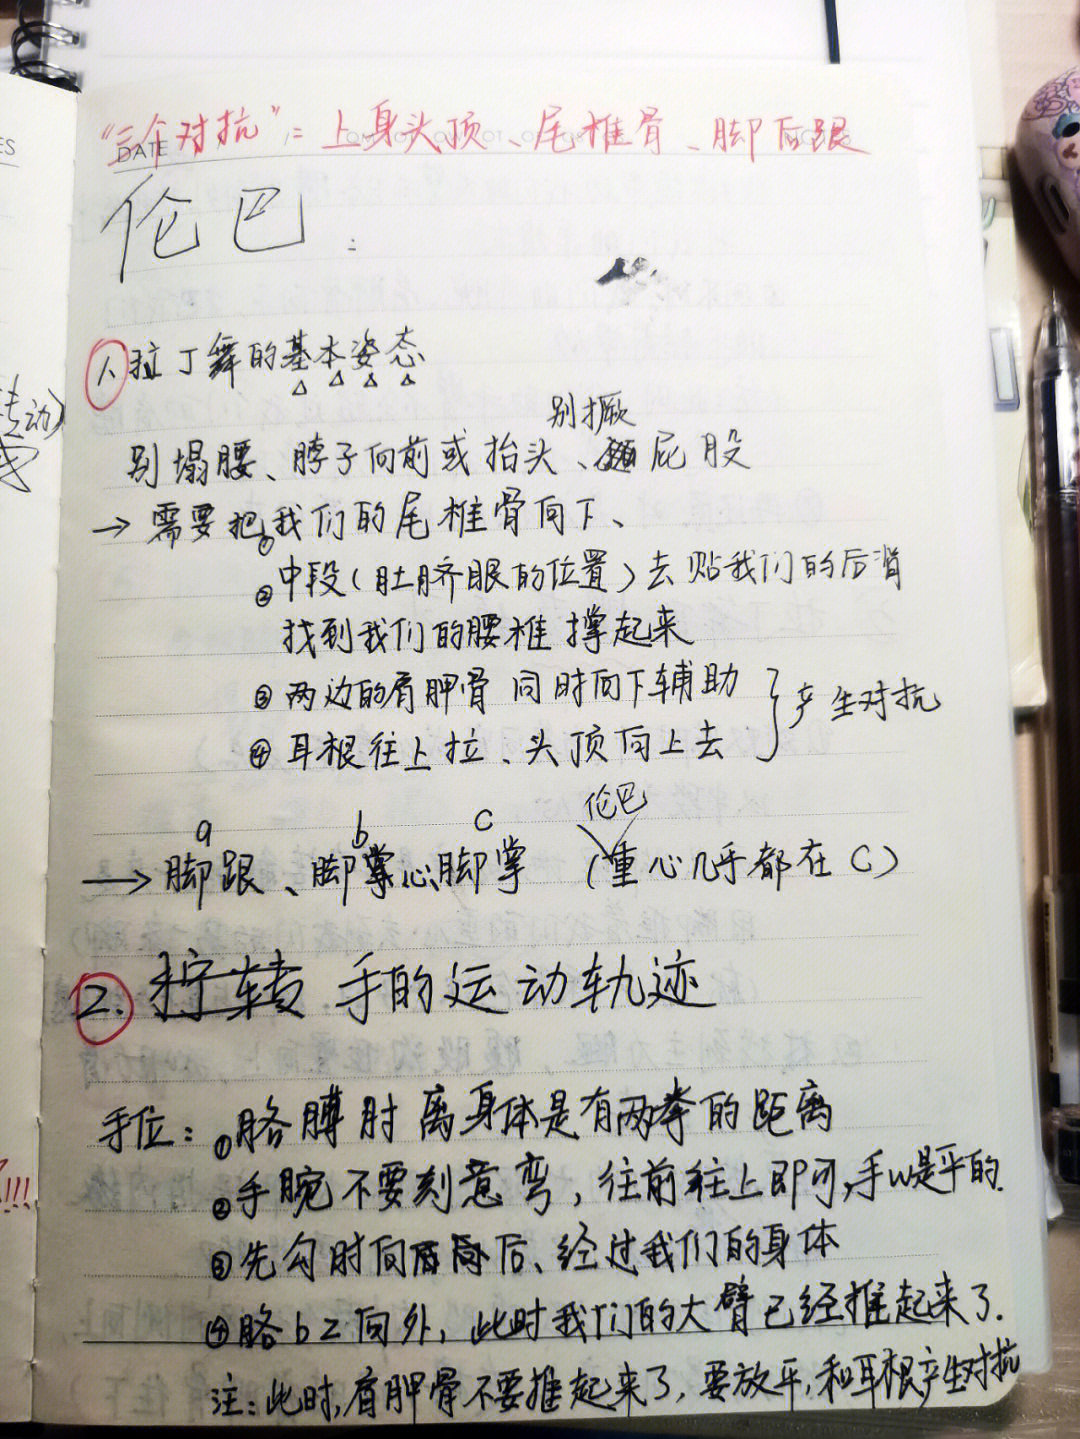 "三个对抗": 上身头顶、尾椎骨、脚后跟
DATE
伦巴:
1、拉丁舞的基本姿态
别撅
别塌腰、脖子向前或抬头、屁股
→需要把①我们的尾椎骨向下、
②中段(肚脐眼的位置)去贴我们的后背
找到我们的腰椎撑起来
③两边的肩胛骨同时向下辅助
产生对抗
④耳根往上拉、头顶向上去
a b c 伦巴
→脚跟、脚掌心、脚掌 (重心几乎都在C)
2. 拧转 手的运动轨迹
手位: ①胳膊肘离身体是有两拳的距离
②手腕不要刻意弯, 往前往上即可,手w是平的.
③先勾时向后、经过我们的身体
④胳bz向外, 此时我们的大臂已经推起来了.
注: 此时,肩胛骨不要推起来了, 要放平, 和耳根产生对抗
转动)
!!!